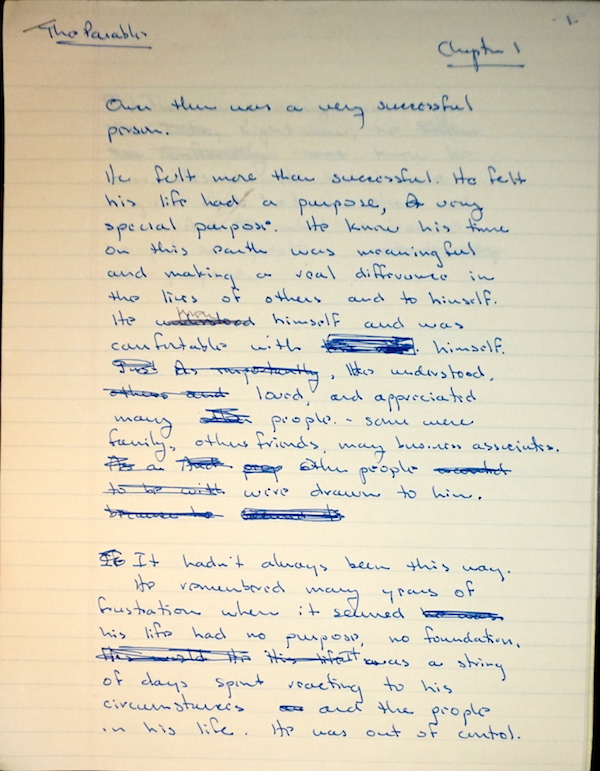 The Parable
- 1 -
Chapter 1
Once there was a very successful
person.
He felt more than successful. He felt
his life had a purpose, A very
special purpose. He knew his time
on this earth was meaningful
and making a real difference in
the lives of others and to himself.
He understood knew himself and was
comfortable with himself.
Just As importantly, He understood,
others and loved, and appreciated
many other people - some were
family, others friends, many business associates.
As a other people wanted
to be with were drawn to him.
because he
It hadn't always been this way.
He remembered many years of
frustration when it seemed he was
his life had no purpose, no foundation.
His life It was a string
of days spent reacting to his
circumstances and the people
in his life. He was out of control.